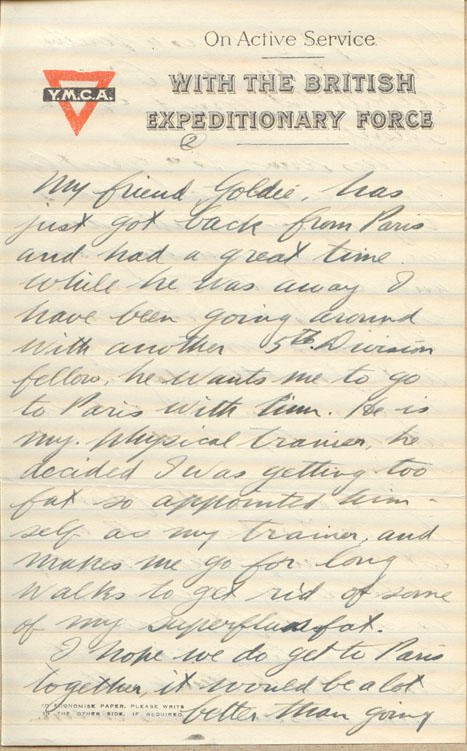 On Active Service
WITH THE BRITISH
EXPEDITIONARY FORCE
Y.M.C.A.
2
My friend, Goldie, has
just got back from Paris
and had a great time.
While he was away I
have been going around
with another 5th. Division
fellow, he wants me to go
to Paris with him. He is
my physical trainer, he
decided I was getting too
fat so appointed him-
self as my trainer, and
makes me go for long
walks to get rid of some
of my superfluous fat.
I hope we do get to Paris
together, it would be a lot
TO ECONOMISE PAPER, PLEASE WRITE
ON THE OTHER SIDE, IF REQUIRED.
better than going